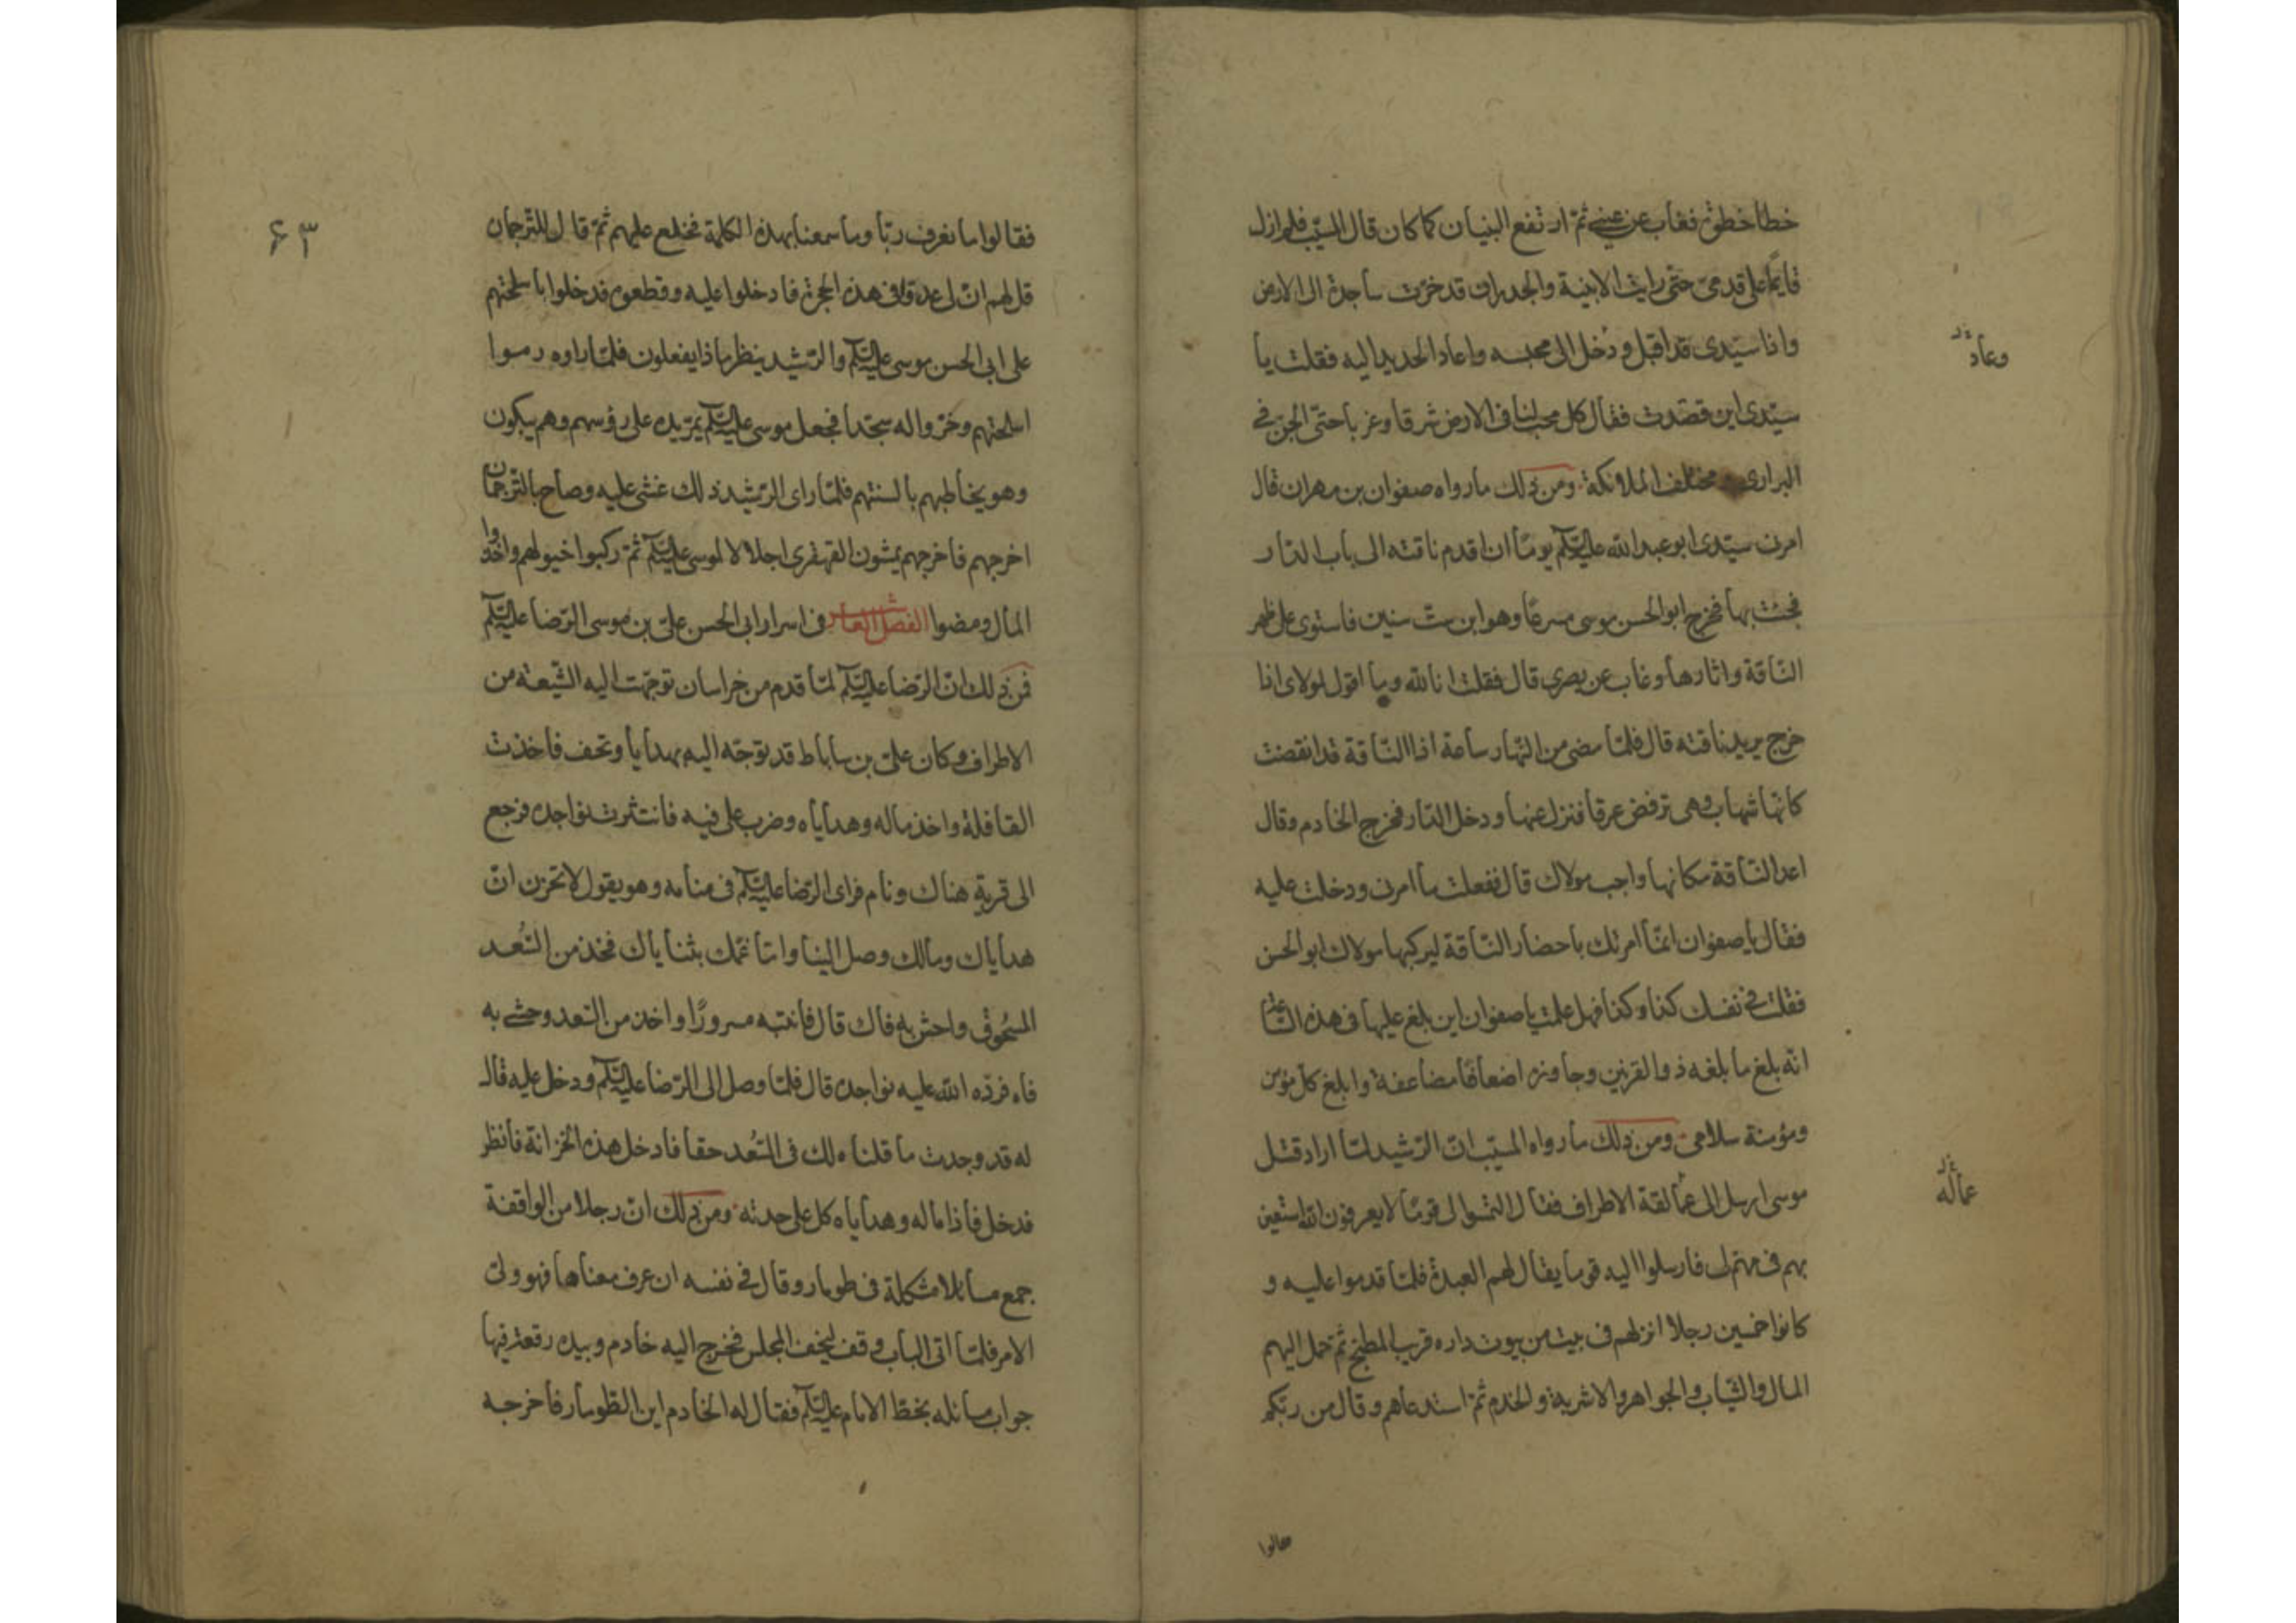 خطا خطوة فغاب عن عيني ثم ارتفع البنيان كما كان قال المسيب فلم ازل
قايما على قدمى حتى رايت الابنية والجدران قد خرت ساجدة الى الارض
واذا سيدى قد اقبل و دخل الى محبسه واعاد الحديد اليه فقلت يا
وعاد
سيدى اين قصدت فقال كل محب لنا فى الارض شرقا وغربا حتى الجن فى
البرارى و مختلف الملائكة ومن ذلك ما رواه صفوان بن مهران قال
امرنى سيدى ابو عبد الله عليه السلم يوما ان اقدم ناقته الى باب الدار
فجئت بها فخرج ابو الحسن موسى مسرعا وهو ابن ست سنين فاستوى على ظهر
الناقة واثارها وغاب عن بصرى قال فقلت انا لله وما اقول لمولاى اذا
خرج يريد ناقته قال فلما مضى من النهار ساعة اذا الناقة قد انقضت
كانها شهاب وهى ترفض عرقا فنزل عنها ودخل الدار فخرج الخادم وقال
اعد الناقة مكانها واجب مولاك قال ففعلت ما امرنى ودخلت عليه
فقال يا صفوان انما امرتك باحضار الناقة ليركبها مولاك ابو الحسن
فقلت فى نفسك كذا وكذا فهل علمت يا صفوان اين بلغ عليها فى هذه الساعة
انه بلغ ما بلغه ذو القرنين وجاوزه اضعافا مضاعفة وابلغ كل مؤمن
ومؤمنة سلامى ومن ذلك ما رواه المسيب ان الرشيد لما اراد قتل
موسى ارسل الى عمالقة الاطراف فقال التمسوا لى قوما لا يعرفون الله استعين
عماله
بهم فى مهم لى فارسلوا اليه قوما يقال لهم العبدة فلما قدموا عليه و
كانوا خمسين رجلا انزلهم فى بيت من بيوت داره قريب المطبخ ثم حمل اليهم
المال والثياب والجواهر والاشربة والخدم ثم استدعاهم وقال من ربكم
فقالوا
۶۳
فقالوا ما نعرف ربا وما سمعنا بهذه الكلمة فخلع عليهم ثم قال للترجمان
قل لهم ان لى عدوا فى هذه الحجرة فادخلوا عليه وقطعوه فدخلوا باسلحتهم
على ابى الحسن موسى عليه السلم والرشيد ينظر ماذا يفعلون فلما راوه رموا
اسلحتهم وخروا له سجدا فجعل موسى عليه السلم يمر يده على رؤسهم وهم يبكون
وهو يخاطبهم بالسنتهم فلما راى الرشيد ذلك غشى عليه وصاح بالترجمان
اخرجهم فاخرجهم يمشون القهقرى اجلالا لموسى عليه السلم ثم ركبوا خيولهم واخذوا
المال ومضوا الفصل العاشر فى اسرار ابى الحسن على بن موسى الرضا عليه السلم
فمن ذلك ان الرضا عليه السلم لما قدم من خراسان توجهت اليه الشيعة من
الاطراف وكان على بن ساباط قد توجه اليه بهدايا وتحف فاخذت
القافلة واخذ ماله وهداياه وضرب على فيه فانتثرت نواجده فرجع
الى قرية هناك ونام فراى الرضا عليه السلم فى منامه وهو يقول لا تحزن ان
هداياك ومالك وصل الينا واما غمك بثناياك فخذ من السعد
المسحوق واحش به فاك قال فانتبه مسرورا واخذ من السعد وحشى به
فاه فرد الله عليه نواجده قال فلما وصل الى الرضا عليه السلم ودخل عليه قال
له قد وجدت ما قلناه لك فى السعد حقا فادخل هذه الخزانة فانظر
فدخل فاذا ماله وهداياه كل على حدته ومن ذلك ان رجلا من الواقفة
جمع مسايلا مشكلة فى طومار وقال فى نفسه ان عرف معناها فهو ولى
الامر فلما اتى الباب وقف ليخف المجلس فخرج اليه خادم وبيده رقعة فيها
جواب مسائله بخط الامام عليه السلم فقال له الخادم اين الطومار فاخرجه